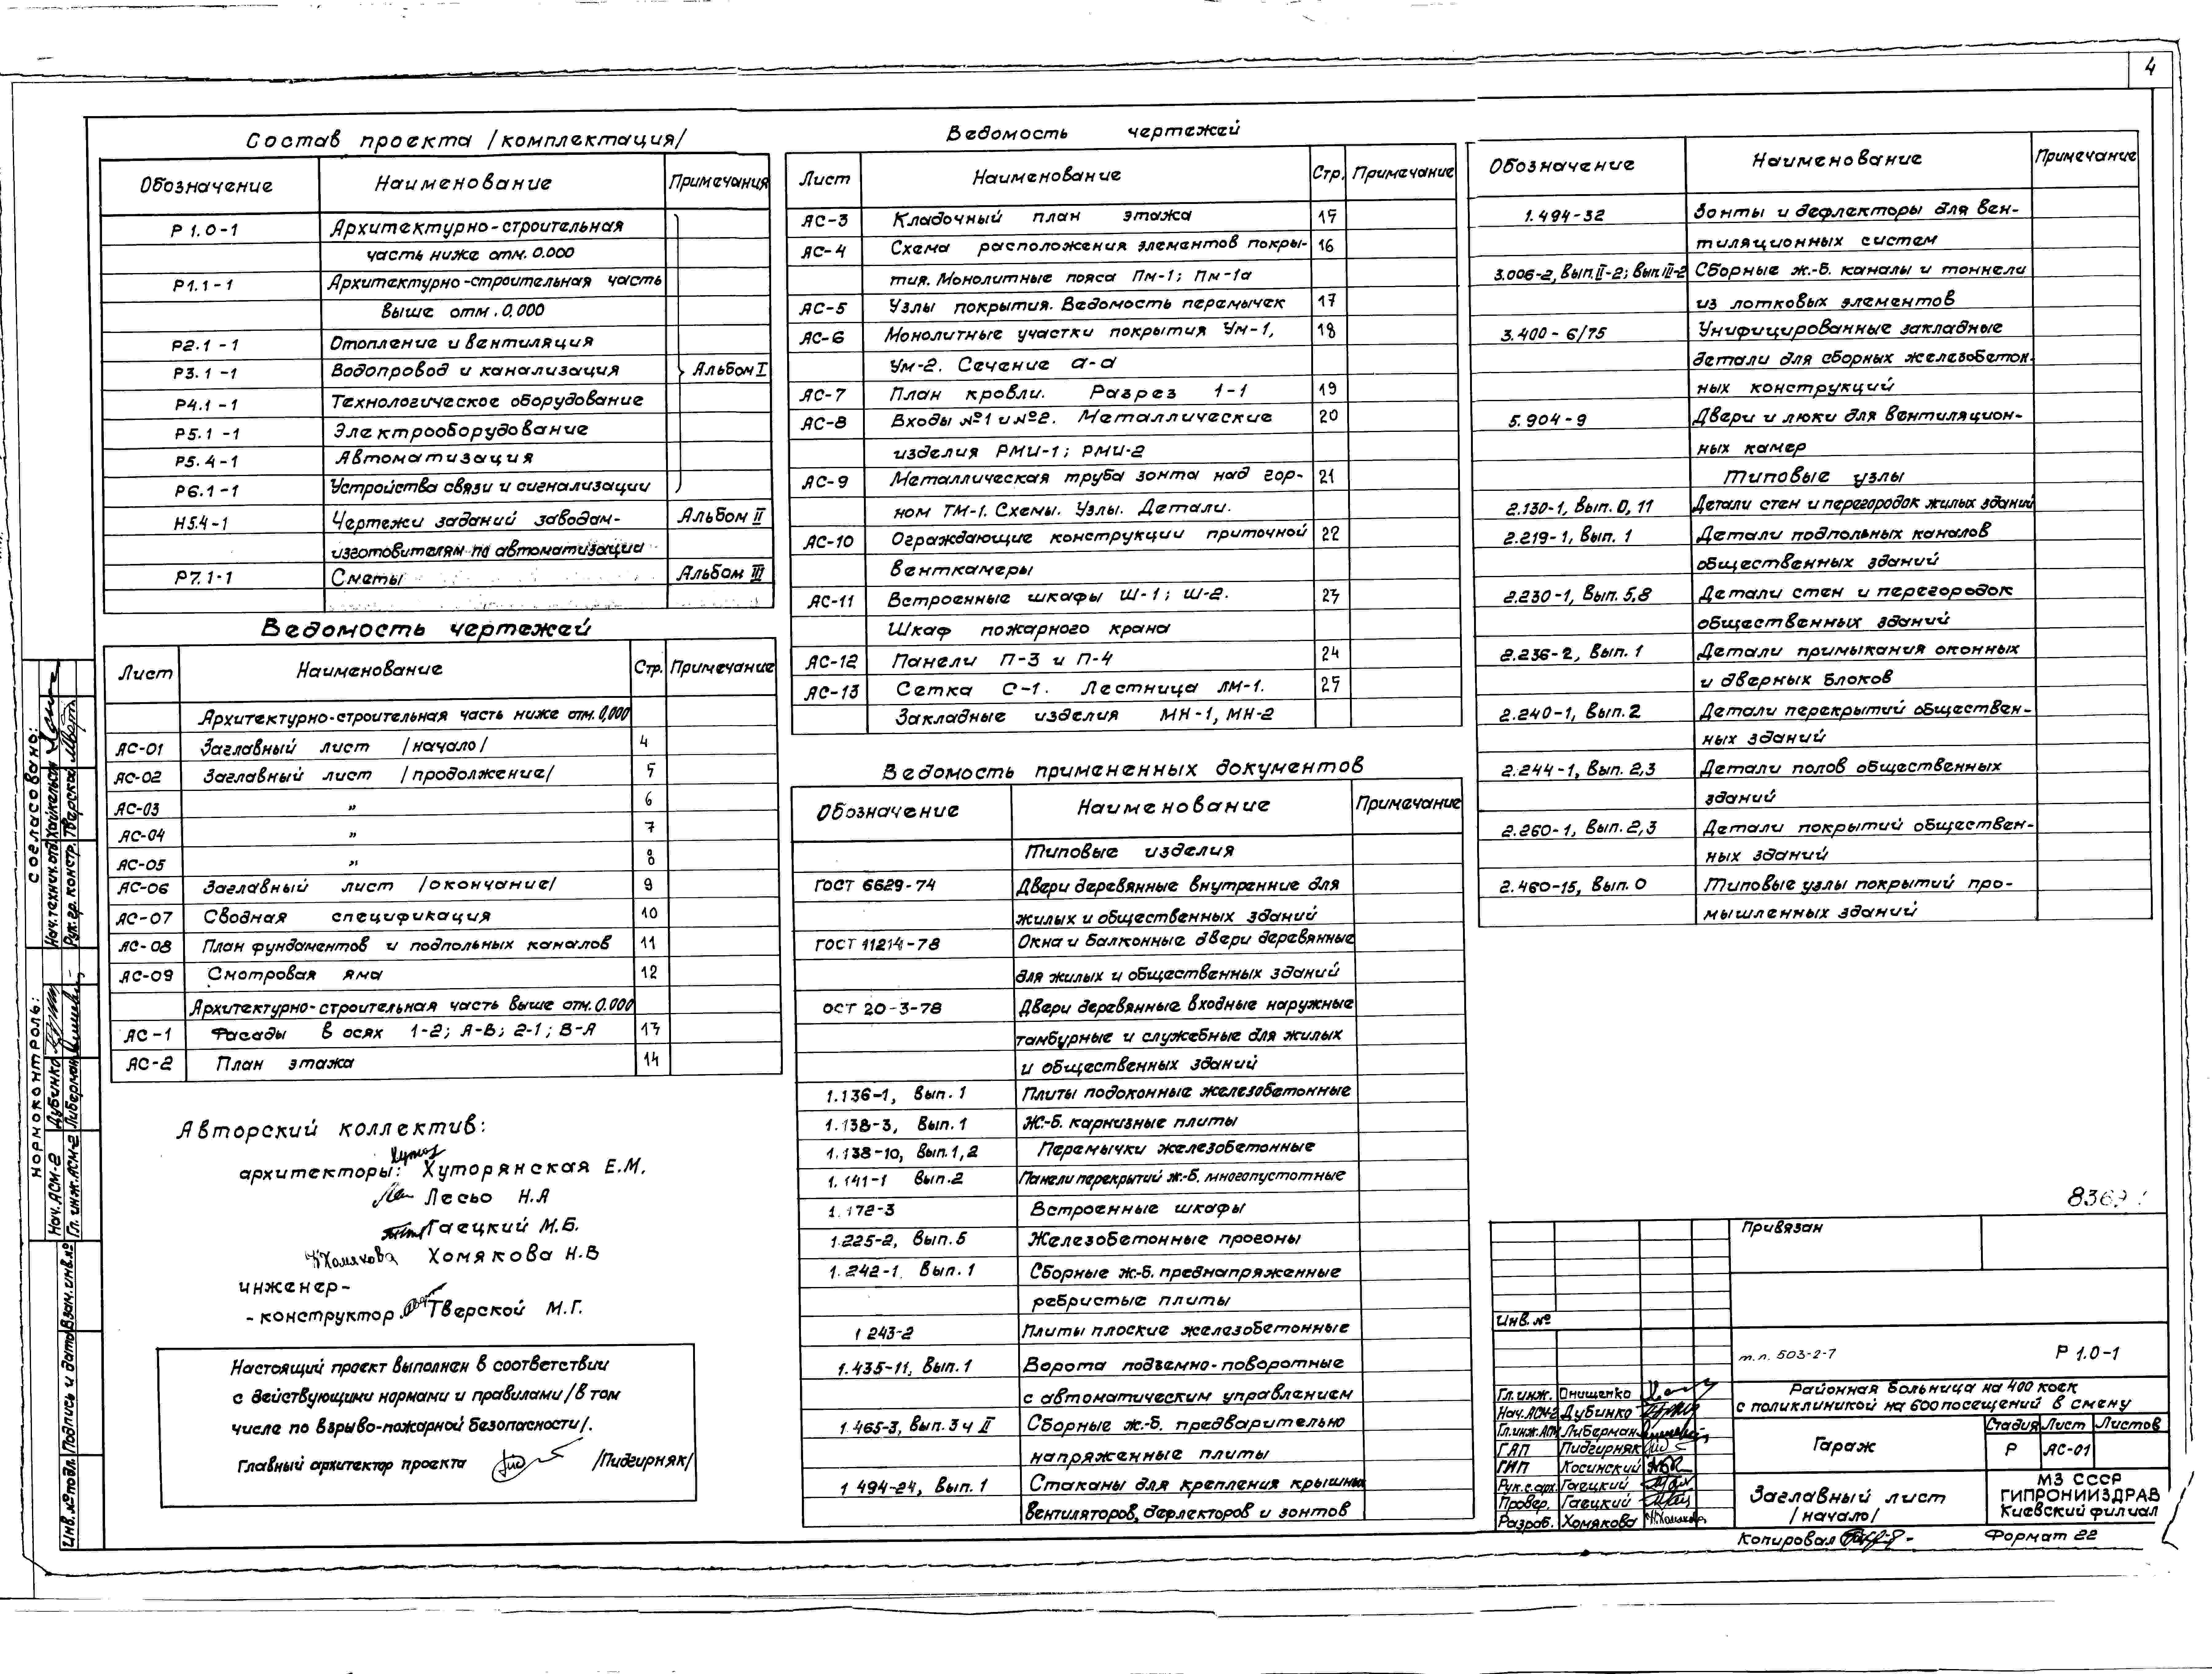 4
Состав проекта /комплектация/
Обозначение Наименование Примечания
Р 1.0-1 Архитектурно-строительная
часть ниже отм. 0.000
Р1.1-1 Архитектурно-строительная часть
выше отм. 0,000
Р2.1-1 Отопление и вентиляция
Р3.1-1 Водопровод и канализация Альбом I
Р4.1-1 Технологическое оборудование
Р5.1-1 Электрооборудование
Р5.4-1 Автоматизация
Р6.1-1 Устройства связи и сигнализации
Н5.4-1 Чертежи заданий заводам- Альбом II
изготовителям по автоматизации
Р7.1-1 Сметы Альбом III
Ведомость чертежей
Лист Наименование Стр. Примечание
Архитектурно-строительная часть ниже отм. 0,000
АС-01 Заглавный лист /начало/ 4
АС-02 Заглавный лист /продолжение/ 5
АС-03 " 6
АС-04 " 7
АС-05 " 8
АС-06 Заглавный лист /окончание/ 9
АС-07 Сводная спецификация 10
АС-08 План фундаментов и подпольных каналов 11
АС-09 Смотровая яма 12
Архитектурно-строительная часть выше отм. 0.000
АС-1 Фасады в осях 1-2; А-В; 2-1; В-А 13
АС-2 План этажа 14
Авторский коллектив:
архитекторы: Хуторянская Е.М.
Лесьо Н.А
Гаецкий М.Б.
Н.Хомякова Хомякова Н.В
инженер-
-конструктор Тверской М.Г.
Настоящий проект выполнен в соответствии
с действующими нормами и правилами /в том
числе по взрыво-пожарной безопасности/.
Главный архитектор проекта /Пидгирняк/
Ведомость чертежей
Лист Наименование Стр. Примечание
АС-3 Кладочный план этажа 15
АС-4 Схема расположения элементов покры- 16
тия. Монолитные пояса Пм-1; Пм-1а
АС-5 Узлы покрытия. Ведомость перемычек 17
АС-6 Монолитные участки покрытия Ум-1, 18
Ум-2. Сечение а-а
АС-7 План кровли. Разрез 1-1 19
АС-8 Входы №1 и №2. Металлические 20
изделия РМИ-1; РМИ-2
АС-9 Металлическая труба зонта над гор- 21
ном ТМ-1. Схемы. Узлы. Детали.
АС-10 Ограждающие конструкции приточной 22
венткамеры
АС-11 Встроенные шкафы Ш-1; Ш-2. 23
Шкаф пожарного крана
АС-12 Панели П-3 и П-4 24
АС-13 Сетка С-1. Лестница ЛМ-1. 25
Закладные изделия МН-1, МН-2
Ведомость примененных документов
Обозначение Наименование Примечание
Типовые изделия
ГОСТ 6629-74 Двери деревянные внутренние для
жилых и общественных зданий
ГОСТ 11214-78 Окна и балконные двери деревянные
для жилых и общественных зданий
ОСТ 20-3-78 Двери деревянные входные наружные
тамбурные и служебные для жилых
и общественных зданий
1.136-1, Вып. 1 Плиты подоконные железобетонные
1.138-3, Вып. 1 Ж.-б. карнизные плиты
1.138-10, Вып. 1,2 Перемычки железобетонные
1.141-1 Вып.2 Панели перекрытий ж.-б. многопустотные
1.172-3 Встроенные шкафы
1.225-2, Вып. 5 Железобетонные прогоны
1.242-1. Вып. 1 Сборные ж.-б. преднапряженные
ребристые плиты
1 243-2 Плиты плоские железобетонные
1.435-11, Вып. 1 Ворота подъемно-поворотные
с автоматическим управлением
1.465-3, Вып. 3 ч II Сборные ж.-б. предварительно
напряженные плиты
1 494-24, Вып. 1 Стаканы для крепления крышных
вентиляторов, дефлекторов и зонтов
Обозначение Наименование Примечание
1.494-32 Зонты и дефлекторы для вен-
тиляционных систем
3.006-2, Вып. II-2; Вып. III-2 Сборные ж.-б. каналы и тоннели
из лотковых элементов
3.400-6/75 Унифицированные закладные
детали для сборных железобетон-
ных конструкций
5.904-9 Двери и люки для вентиляцион-
ных камер
Типовые узлы
2.130-1, Вып. 0, 11 Детали стен и перегородок жилых зданий
2.219-1, Вып. 1 Детали подпольных каналов
общественных зданий
2.230-1, Вып. 5,8 Детали стен и перегородок
общественных зданий
2.236-2, Вып. 1 Детали примыкания оконных
и дверных блоков
2.240-1, Вып. 2 Детали перекрытий обществен-
ных зданий
2.244-1, Вып. 2,3 Детали полов общественных
зданий
2.260-1, Вып. 2,3 Детали покрытий обществен-
ных зданий
2.460-15, Вып. 0 Типовые узлы покрытий про-
мышленных зданий
Привязан
Инв. №
т.п. 503-2-7 Р 1.0-1
Районная больница на 400 коек
с поликлиникой на 600 посещений в смену
Гл. инж. Онищенко
Нач. АСМ-2 Дубинко
Гл. инж. АСМ Либерман
ГАП Пидгирняк
ГИП Косинский
Рук. с. арх. Гаецкий
Провер. Гаецкий
Разраб. Хомякова Н.Хомякова
Гараж
Стадия Лист Листов
Р АС-01
Заглавный лист
/начало/
МЗ СССР
ГИПРОНИИЗДРАВ
Киевский филиал
Копировал
Формат 22
согласовано:
Нач. технич. отд. Хайкельсон
Рук. гр. констр. Тверской
нормоконтроль:
Нач. АСМ-2 Дубинко
Гл. инж. АСМ-2 Либерман
Инв. № подл. Подпись и дата Взам. инв. №